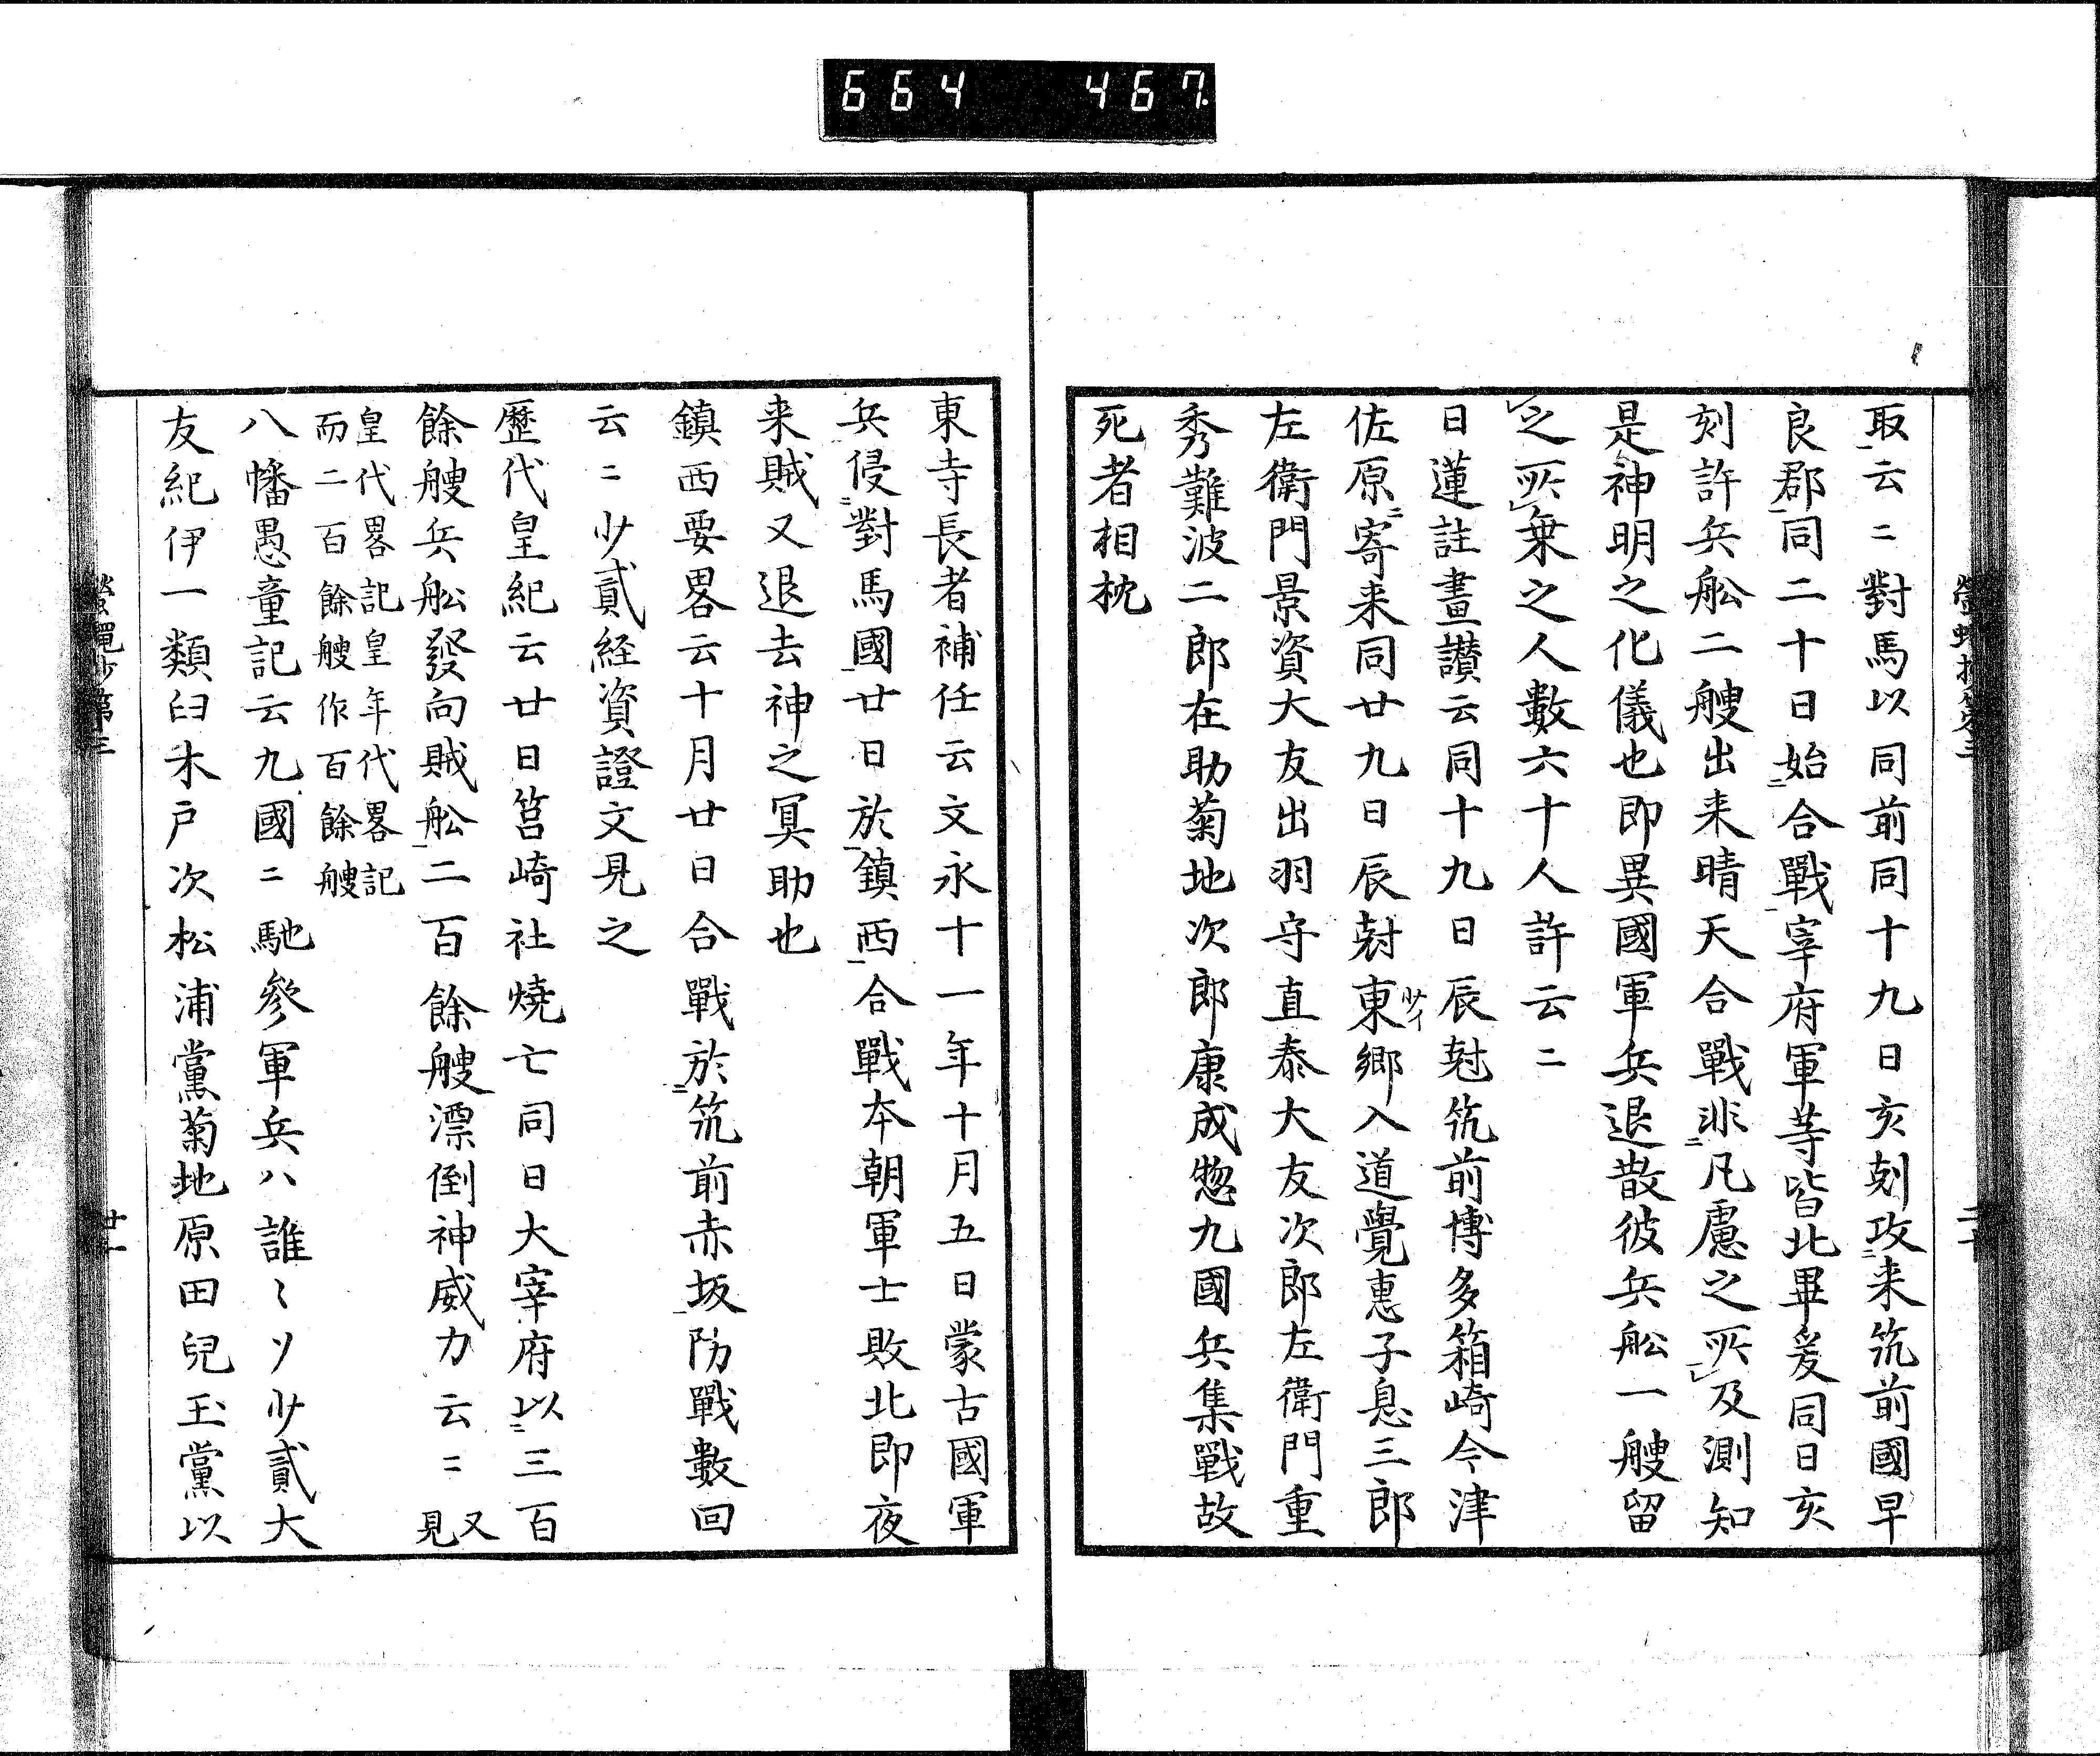 664 467.
取云〻對馬以同前同十九日亥剋攻来筑前國早
良郡同二十日始合戰宰府軍等皆北畢爰同日亥
刻許兵舩二艘出来晴天合戰非凡慮之所及測知
是神明之化儀也即異國軍兵退散彼兵舩一艘留
之所乗之人數六十人許云〻
日蓮註畫讃云同十九日辰尅筑前博多箱崎今津
佐原寄来同廿九日辰尅東少イ郷入道覺惠子息三郎
左衛門景資大友出羽守直泰大友次郎左衛門重
秀難波二郎在助菊地次郎康成惣九國兵集戰故
死者相枕
東寺長者補任云文永十一年十月五日蒙古國軍
兵侵對馬國廿日於鎮西合戰本朝軍士敗北即夜
来賊又退去神之冥助也
鎮西要畧云十月廿日合戰於筑前赤坂防戰數回
云〻少貳経資證文見之
歷代皇紀云廿日筥崎社燒亡同日大宰府以三百
餘艘兵舩發向賊舩二百餘艘漂倒神威力云〻又見
皇代畧記皇年代畧記
而二百餘艘作百餘艘
八幡愚童記云九國ニ馳參軍兵ハ誰〻ソ少貳大
友紀伊一類臼木戸次松浦黨菊地原田兒玉黨以
螢蠅抄第三
廿一